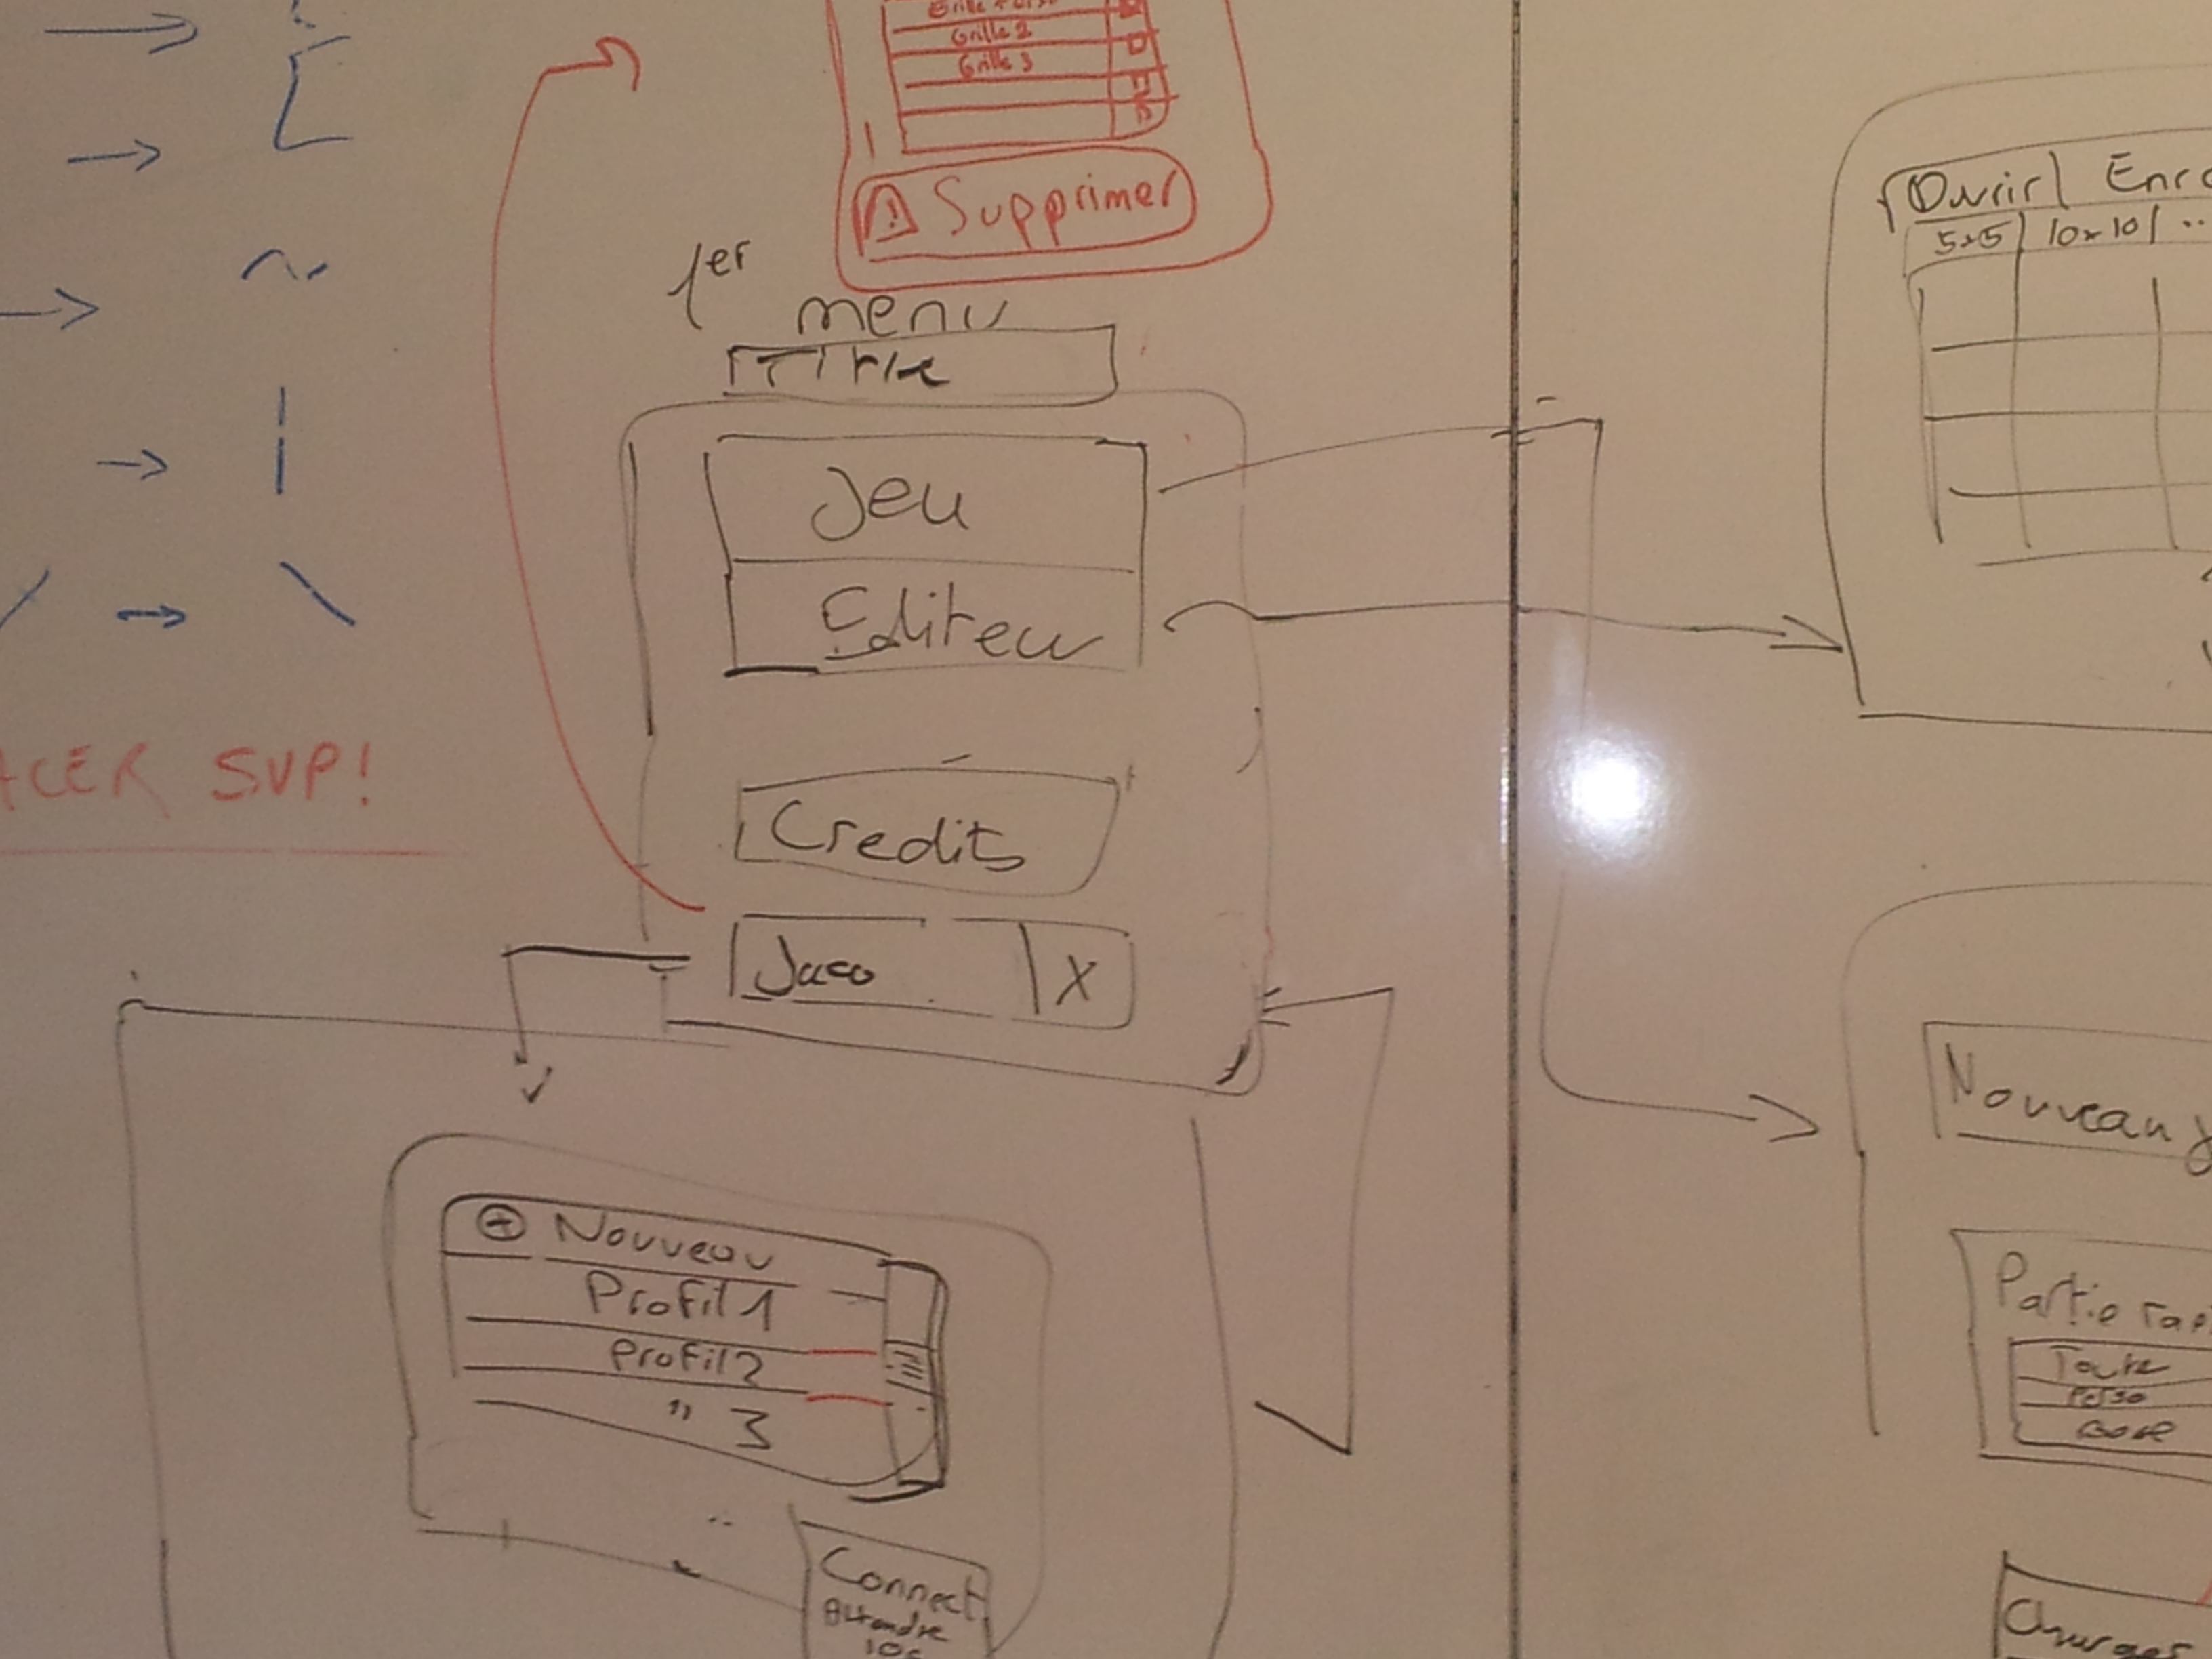 Grille 2
Grille 3
Supprimer
1er
menu
Title
Jeu
Editeur
Credits
Jaco X
ACER SVP!
Nouveau
Profil 1
Profil 2
" 3
Connect
Attendre
10s
Ouvrir Enre
5x5 10x10 ..
Nouveau j
Partie rap
Toute
Perso
Base
Charger